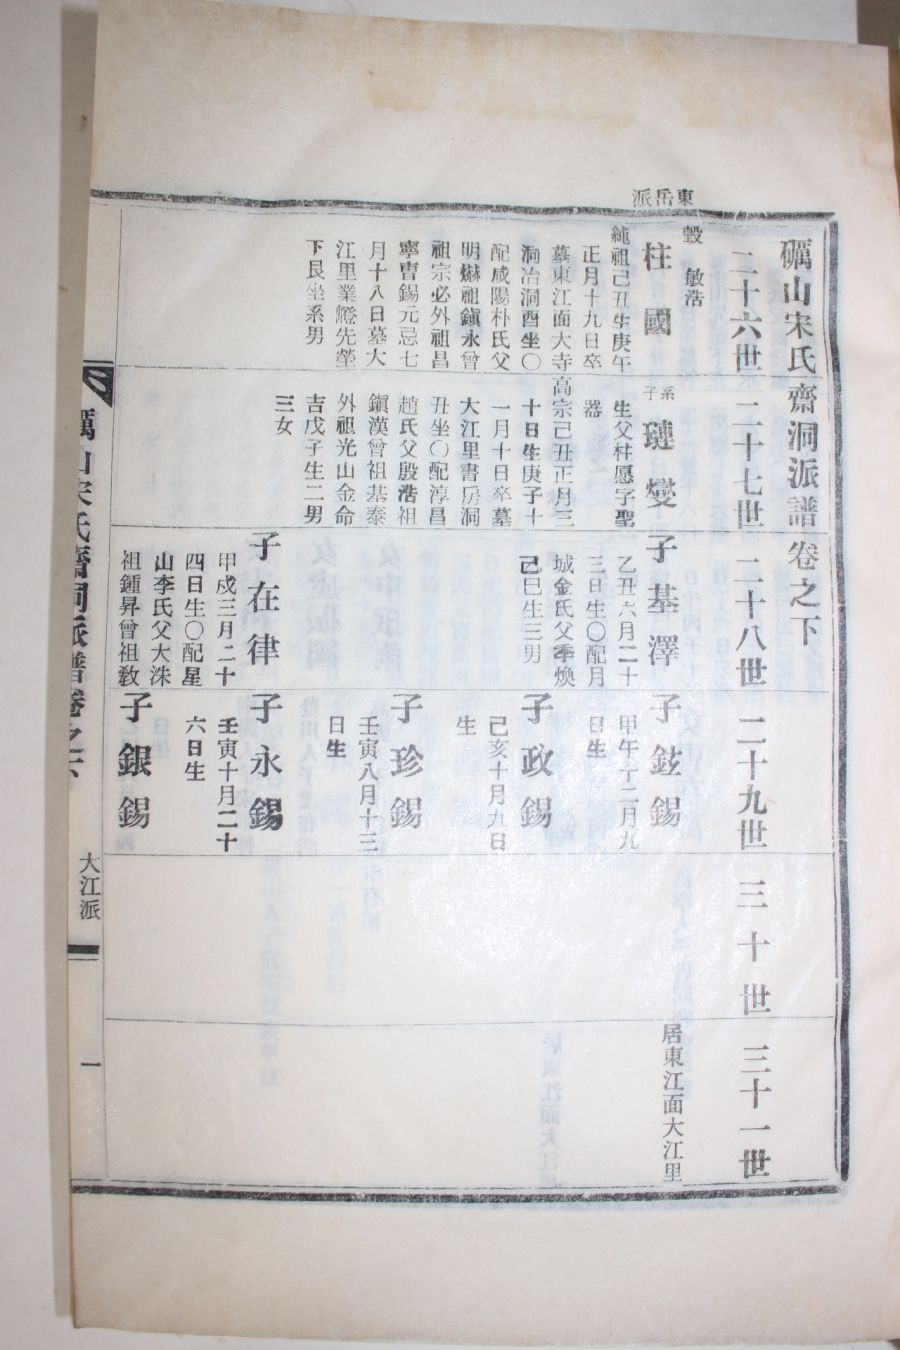 東岳派
礪山宋氏齋洞派譜卷之下
二十六世
二十七世
二十八世
二十九世
三十世
三十一世
㲄 敏浩
柱國
純祖己丑生庚午
正月十九日卒
墓東江面大寺
洞冶洞酉坐〇
配咸陽朴氏父
明爀祖鎭永曾
祖宗必外祖昌
寧曺錫元忌七
月十八日墓大
江里業燈先塋
下艮坐系男
系子 璉燮
生父柱愿字聖
器
高宗己丑正月三
十日生庚子十
一月十日卒墓
大江里書房洞
丑坐〇配淳昌
趙氏父殷浩祖
鎭漢曾祖基泰
外祖光山金命
吉戊子生二男
三女
子基澤
乙丑六月二十
三日生〇配月
城金氏父季煥
己巳生三男
子在律
甲戍三月二十
四日生〇配星
山李氏父大洙
祖鍾昇曾祖敎
子鉉錫
甲午十二月九
日生
子政錫
己亥十月九日
生
子珍錫
壬寅八月十三
日生
子永錫
壬寅十月二十
六日生
子銀錫
居東江面大江里
礪山宋氏齋洞派譜卷之下
大江派
一